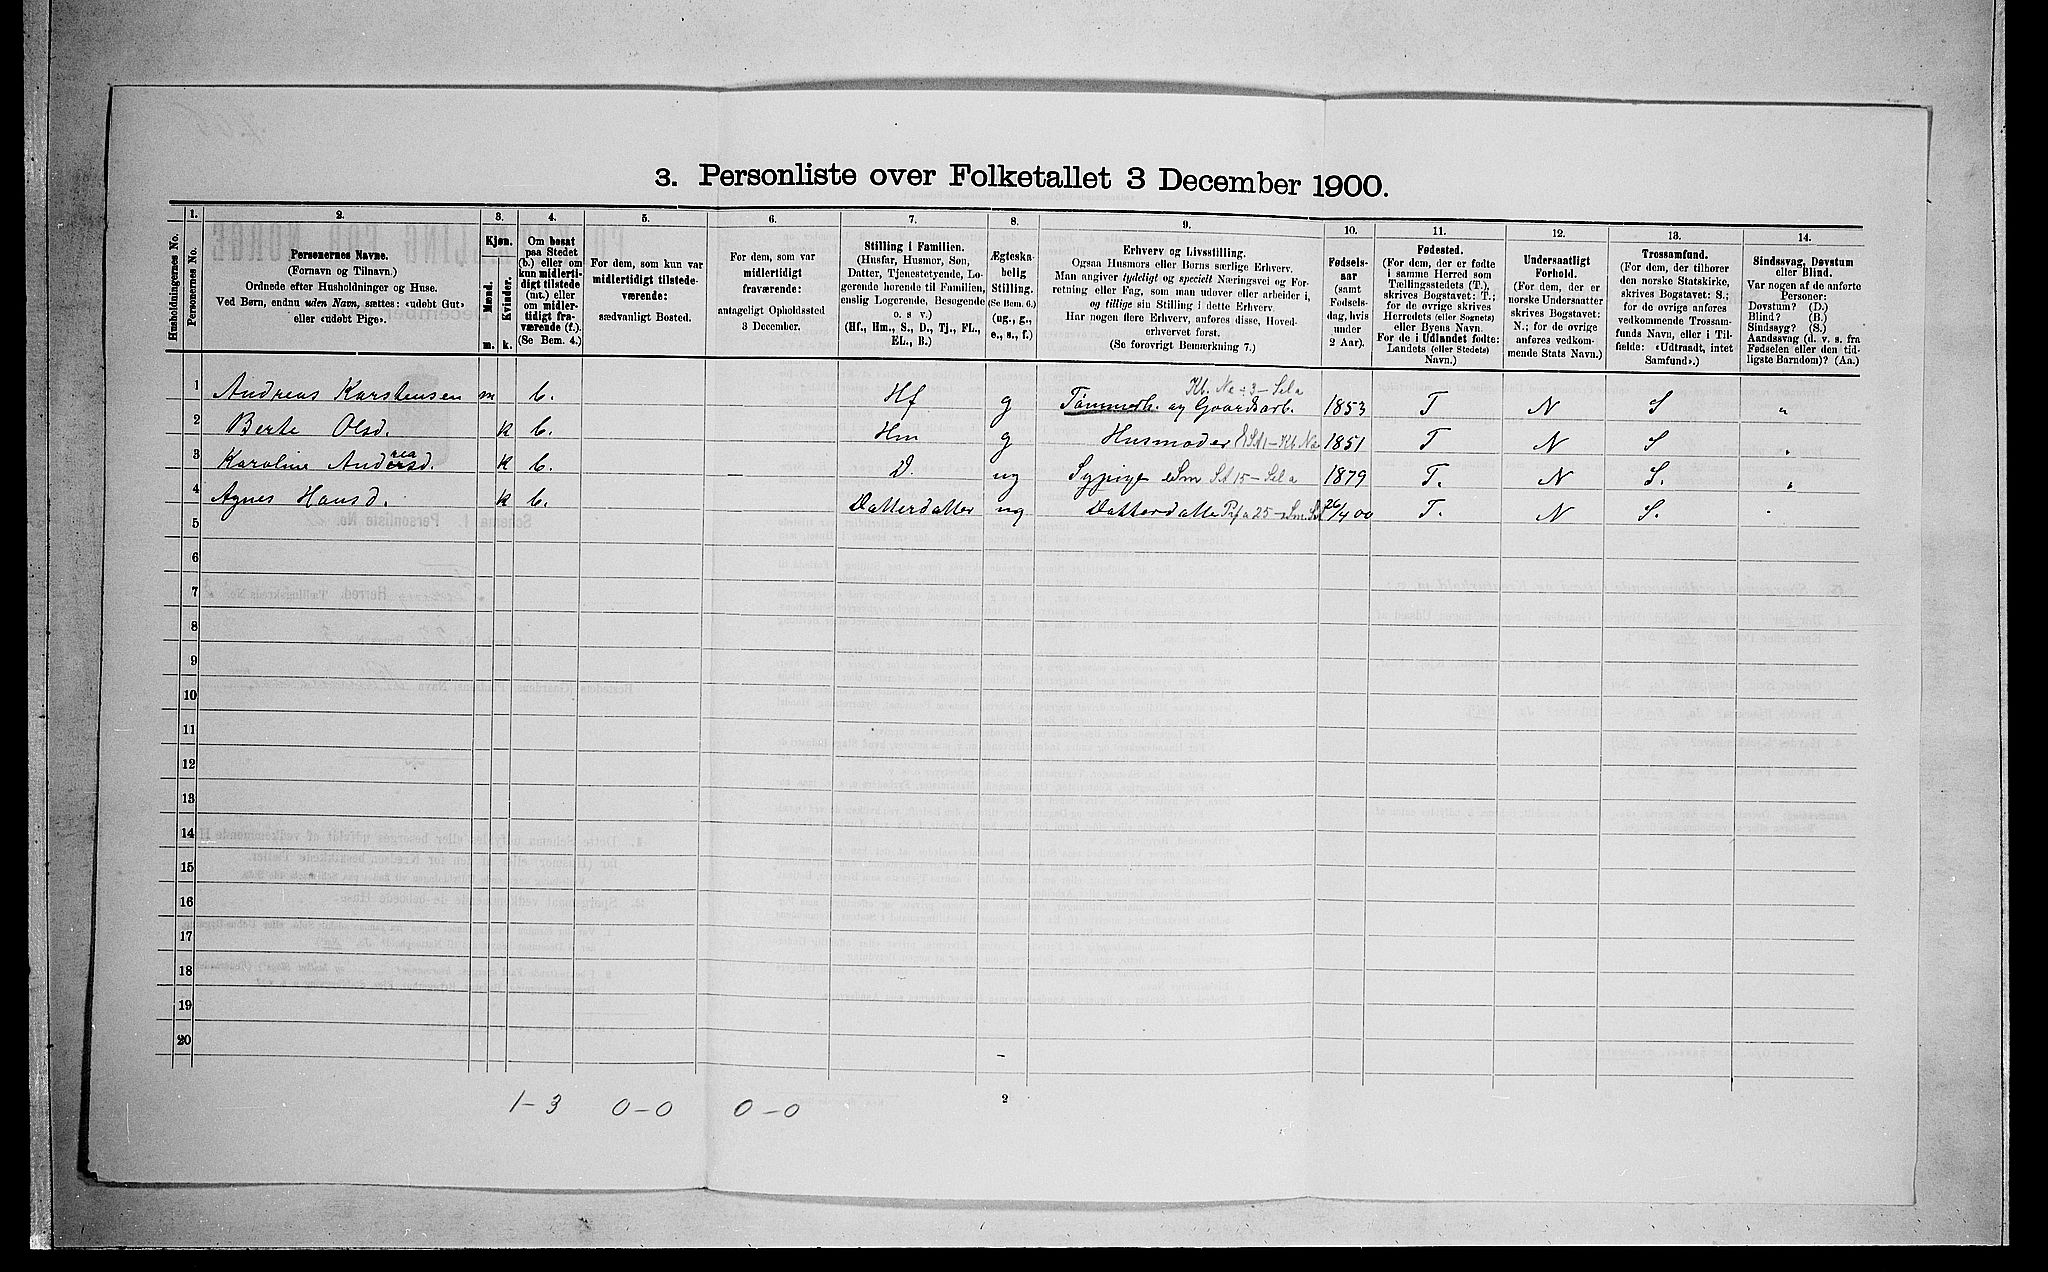 3. Personliste over Folketallet 3 December 1900.
Husholdningernes No.
1.
Personernes No.
2.
Personernes Navne.
(Fornavn og Tilnavn.)
Ordnede efter Husholdninger og Huse.
Ved Børn, endnu uden Navn, sættes: «udøbt Gut»
eller «udøbt Pige».
3.
Kjøn.
Mænd.
Kvinder.
m.
k.
4.
Om bosat
paa Stedet
(b.) eller om
kun midlerti-
digt tilstede
(mt.) eller
om midler-
tidigt fra-
værende (f.).
(Se Bem. 4.)
5.
For dem, som kun var
midlertidigt tilstede-
værende:
sædvanligt Bosted.
6.
For dem, som var
midlertidigt
fraværende:
antageligt Opholdssted
3 December.
7.
Stilling i Familien.
(Husfar, Husmor, Søn,
Datter, Tjenestetyende, Lo-
gerende hørende til Familien,
enslig Logerende, Besøgende
o. s v.)
(Hf., Hm., S., D., Tj., FL.,
EL., B.)
8.
Ægteska-
belig
Stilling.
(Se Bem. 6.)
(ug., g.,
e., s., f.)
9.
Erhverv og Livsstilling.
Ogsaa Husmors eller Børns særlige Erhverv.
Man angiver tydeligt og specielt Næringsvei og For-
retning eller Fag, som man udøver eller arbeider i,
og tillige sin Stilling i dette Erhverv.
Har nogen flere Erhverv, anføres disse, Hoved-
erhvervet først.
(Se forøvrigt Bemærkning 7.)
10.
Fødsels-
aar
(samt
Fødsels-
dag, hvis
under
2 Aar).
11.
Fødested.
(For dem, der er fødte
i samme Herred som
Tællingsstedets (T.),
skrives Bogstavet: T.;
for de øvrige skrives
Herredets (eller Sognets)
eller Byens Navn.
For de i Udlandet fødte:
Landets (eller Stedets)
Navn.)
12.
Undersaatligt
Forhold.
(For dem, der er
norske Undersaatter
skrives Bogstavet:
N.; for de øvrige
anføres vedkom-
mende Stats Navn.)
13.
Trossamfund.
(For dem, der tilhører
den norske Statskirke,
skrives Bogstavet: S.;
for de øvrige anføres
vedkommende Trossam-
funds Navn, eller i Til-
fælde: «Udtraadt, intet
Samfund».)
14.
Sindssvag, Døvstum
eller Blind.
Var nogen af de anførte
Personer:
Døvstum? (D.)
Blind? (B.)
Sindssyg? (S.)
Aandssvag (d. v. s. fra
Fødselen eller den tid-
ligste Barndom)? (Aa.)
1 Andreas Karstensen m b. Hf g Tømmerh. og Gaardsarb. 1853 T N S "
2 Berte Olsd. k b. Hm g Husmoder 1851 T N S
3 Karoline Andersd. k b. D. ug Sypige 1879 T. N S.
4 Agnes Hansd. k b. Datterdatter ug Datterdatte 26/4 00 T. N S.
5
6
7
8
9
10
11
12
13
14
15
16
17
18
19
20
1-3 0-0 0-0 2